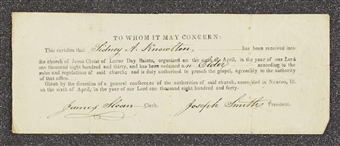 TO WHOM IT MAY CONCERN:
This certifies that Sidney A. Knowlton, has been received into
the church of Jesus Christ of Latter Day Saints, organized on the sixth of April, in the year of our Lord
one thousand eight hundred and thirty, and has been ordained an Elder according to the
rules and regulations of said church; and is duly authorized to preach the gospel, agreeably to the authority
of that office.
Given by the direction of a general conference of the authorities of said church, assembled in Nauvoo, Ill.
on the sixth of April, in the year of our Lord one thousand eight hundred and forty.
James Sloan Clerk. Joseph Smith President.